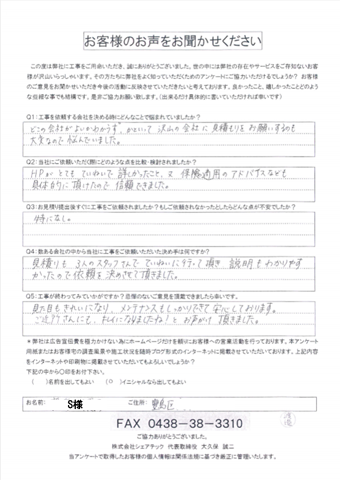 お客様のお声をお聞かせください
この度は弊社に工事をご用命いただき、誠にありがとうございました。世の中には弊社の存在やサービスをご存知ないお客
様が沢山いらっしゃいます。その方たちに弊社をよく知っていただくためのアンケートにご協力いただけるでしょうか？ お客様
のご意見をお聞かせいただき今後の活動に反映させていただきたいと考えております。良かったこと、嬉しかったことどのよう
な些細な事でも結構です。是非ご協力お願い致します。（出来るだけ具体的に書いていただければ幸いです）
Q1：工事を依頼する会社を決める時にどんなことで悩まれていましたか？
どこの会社がよいかわからず、かといって沢山の会社に見積もりをお願いするのも
大変なので悩んでいました。
Q2：当社にご依頼いただく際にどのような点を比較・検討されましたか？
HPがとてもていねいで詳しかったこと、又保険適用のアドバイスなども
具体的に頂けたので信頼できました。
Q3：お見積り提出後すぐに工事をご依頼されましたか？もしご依頼されなかったとしたらどんな点が不安でしたか？
特になし。
Q4：数ある会社の中から当社に工事をご依頼いただいた決め手は何ですか？
見積りも3人のスタッフさんでていねいに行って頂き説明もわかりやす
かったので依頼を決めさせて頂きました。
Q5：工事が終わってみていかがですか？忌憚のないご意見を頂戴できましたら幸いです。
見た目もきれいになり、メンテナンスもしっかりできて安心しております。
ご近所さんにも、キレイになりましたね！とお声がけ頂きました。
＊弊社は広告宣伝費を極力かけない為にホームページだけを頼りにお客様への営業活動を行っております。本アンケート
用紙またお客様宅の調査風景や施工状況を随時ブログ形式のインターネットに掲載させていただいております。上記内容
をインターネットや印刷物に掲載させていただいてもよろしいでしょうか？
下記の中から〇印をお付下さい。
（ ）名前を出してもよい （〇）イニシャルなら出してもよい
お名前： S様 ご住所： 豊島区
FAX 0438-38-3310
ご協力ありがとうございました。
株式会社シェアテック 代表取締役 大久保 誠二
当アンケートで取得したお客様の個人情報は関係法規に基づき厳正に管理いたします。